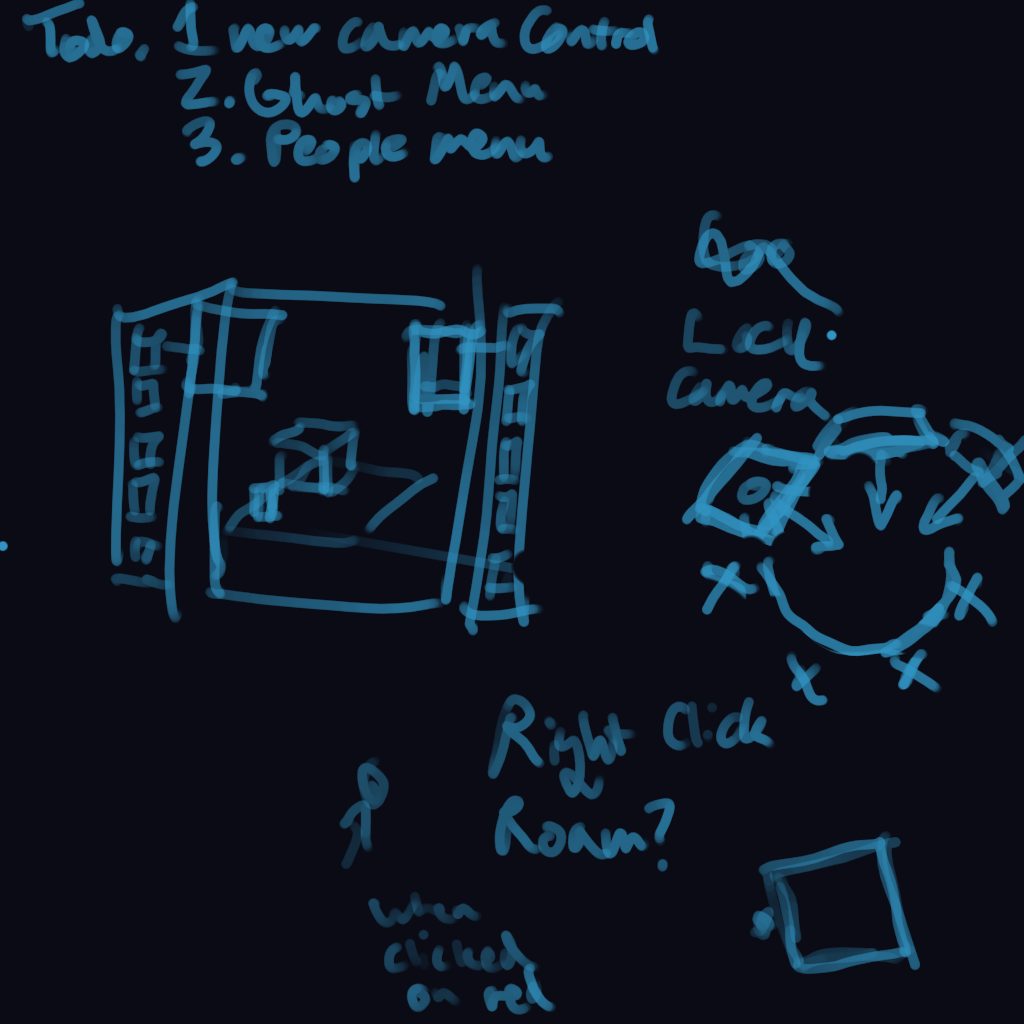 Todo. 1 new camera Control
2. Ghost Menu
3. People menu
Lock
Camera
Right Click
Roam?
when
clicked
on red